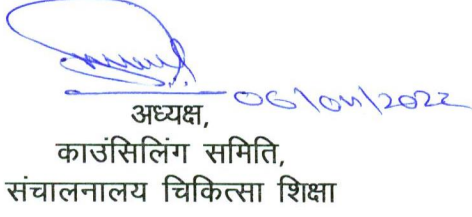 06/04/2022
अध्यक्ष,
काउंसिलिंग समिति,
संचालनालय चिकित्सा शिक्षा